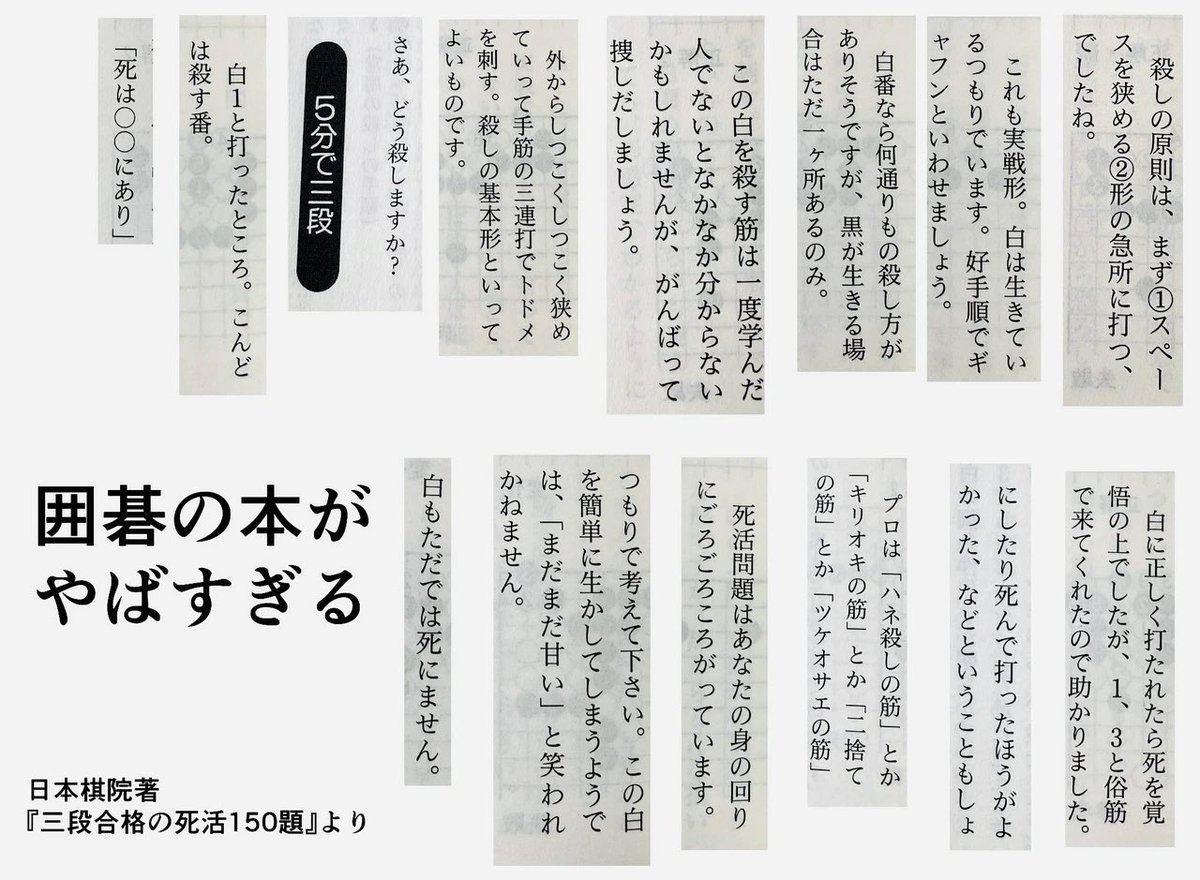 殺しの原則は、まず①スペー
スを狭める②形の急所に打つ、
でしたね。
これも実戦形。白は生きてい
るつもりでいます。好手順でギ
ャフンといわせましょう。
白番なら何通りもの殺し方が
ありそうですが、黒が生きる場
合はただ一ヶ所あるのみ。
この白を殺す筋は一度学んだ
人でないとなかなか分からない
かもしれませんが、がんばって
捜しだしましょう。
外からしつこくしつこく狭め
ていって手筋の三連打でトドメ
を刺す。殺しの基本形といって
よいものです。
さあ、どう殺しますか?
5分で三段
白1と打ったところ。こんど
は殺す番。
「死は〇〇にあり」
白に正しく打たれたら死を覚
悟の上でしたが、1、3と俗筋
で来てくれたので助かりました。
にしたり死んで打ったほうがよ
かった、などということもしょ
プロは「ハネ殺しの筋」とか
「キリオキの筋」とか「二捨て
の筋」とか「ツケオサエの筋」
死活問題はあなたの身の回り
にごろごろころがっています。
つもりで考えて下さい。この白
を簡単に生かしてしまうようで
は、「まだまだ甘い」と笑われ
かねません。
白もただでは死にません。
囲碁の本が
やばすぎる
日本棋院著
『三段合格の死活150題』より